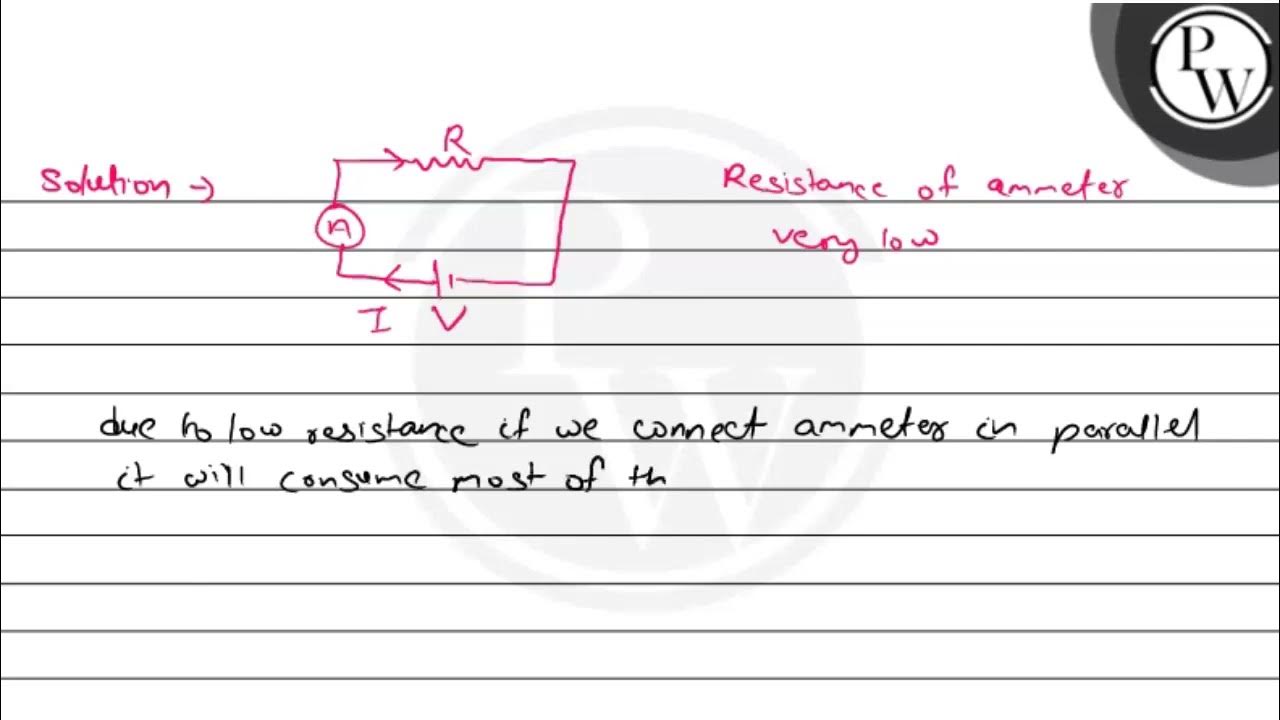 PW
R
Solution →
Resistance of ammeter
A
very low
I V
due to low resistance if we connect ammeter in parallel
it will consume most of th
PW